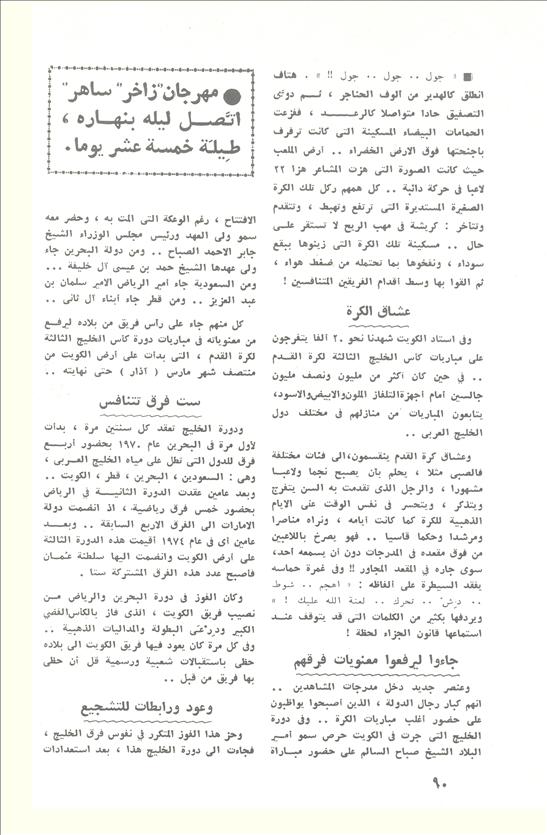 ■ « جول .. جول .. جول !! » . هتاف
انطلق كالهدير من الوف الحناجر ، ثم دوّى
التصفيق حادا متواصلا كالرعد ، ففزعت
الحمامات البيضاء المسكينة التى كانت ترفرف
باجنحتها فوق الارض الخضراء .. أرض الملعب
حيث كانت الصورة التى هزت المشاعر هزا ٢٢
لاعبا فى حركة دائبة .. كل همهم ركل تلك الكرة
الصغيرة المستديرة التى ترتفع وتهبط ، وتتقدم
وتتأخر : كريشة فى مهب الريح لا تستقر على
حال .. مسكينة تلك الكرة التى زينوها ببقع
سوداء ، ونفخوها بما تحتمله من ضغط هواء ،
ثم القوا بها وسط أقدام الفريقين المتنافسين !
عشاق الكرة
وفى استاد الكويت شهدنا نحو ٢٠ ألفا يتفرجون
على مباريات كأس الخليج الثالثة لكرة القدم
.. فى حين كان أكثر من مليون ونصف مليون
جالسين أمام اجهزةالتلفاز الملون والابيض والاسود،
يتابعون المباريات من منازلهم فى مختلف دول
الخليج العربى ..
وعشاق كرة القدم ينقسمون،الى فئات مختلفة
فالصبى مثلا ، يحلم بأن يصبح نجما ولاعبا
مشهورا ، والرجل الذى تقدمت به السن يتفرج
ويتذكر ، ويتحسر فى نفس الوقت على الايام
الذهبية للكرة كما كانت أيامه ، ونراه مناصرا
ومرشدا وحكما قاسيا .. فهو يصرخ باللاعبين
من فوق مقعده فى المدرجات دون أن يسمعه أحد،
سوى جاره فى المقعد المجاور !! وفى غمرة حماسه
يفقد السيطرة على ألفاظه : « أهجم .. شوط
.. تحرك .. لعنة الله عليك ! »
ويردفها بكثير من الكلمات التى قد يتوقف عند
استماعها قانون الجزاء لحظة !
جاءوا ليرفعوا معنويات فرقهم
وعنصر جديد دخل مدرجات المشاهدين ..
انهم كبار رجال الدولة ، الذين أصبحوا يواظبون
على حضور أغلب مباريات الكرة .. وفى دورة
الخليج التى جرت فى الكويت حرص سمو أمير
البلاد الشيخ صباح السالم على حضور مباراة
● مهرجان "زاخر" ساهر
اتّصل ليله بنهاره ،
طيلة خمسة عشر يوما.
الافتتاح ، رغم الوعكة التى المت به ، وحضر معه
سمو ولى العهد ورئيس مجلس الوزراء الشيخ
جابر الاحمد الصباح .. ومن دولة البحرين جاء
ولى عهدها الشيخ حمد بن عيسى آل خليفة ...
ومن السعودية جاء أمير الرياض الامير سلمان بن
عبد العزيز .. ومن قطر جاء أبناء آل ثانى ..
كل منهم جاء على رأس فريق من بلاده ليرفع
من معنوياته فى مباريات دورة كأس الخليج الثالثة
لكرة القدم ، التى بدأت على أرض الكويت من
منتصف شهر مارس ( آذار ) حتى نهايته ..
ست فرق تتنافس
ودورة الخليج تعقد كل سنتين مرة ، بدأت
لأول مرة فى البحرين عام ١٩٧٠ بحضور أربع
فرق للدول التى تطل على مياه الخليج العربى ،
وهى : السعودين ، البحرين ، قطر ، الكويت ..
وبعد عامين عقدت الدورة الثانية فى الرياض
بحضور خمس فرق رياضية ، اذ انضمت دولة
الامارات الى الفرق الاربع السابقة .. وبعد
عامين أى فى عام ١٩٧٤ أقيمت هذه الدورة الثالثة
على أرض الكويت وانضمت اليها سلطنة عُمان
فأصبح عدد هذه الفرق المشتركة ستا .
وكان الفوز فى دورة البحرين والرياض من
نصيب فريق الكويت ، الذى فاز بالكأس الفضى
الكبير ودرعى البطولة والمداليات الذهبية ..
وفى كل مرة كان يعود فيها فريق الكويت الى بلاده
حظى باستقبالات شعبية ورسمية قل أن حظى
بها فريق من قبل ..
وعود ورابطات للتشجيع
وحز هذا الفوز المتكرر فى نفوس فرق الخليج ،
فجاءت الى دورة الخليج هذا ، بعد استعدادات
٩٠